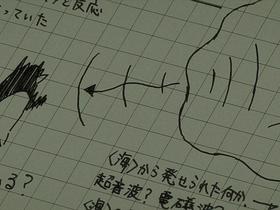 と反応
っていた
る?
〈海〉から発せられた何か
超音波? 電磁波?
〈海〉